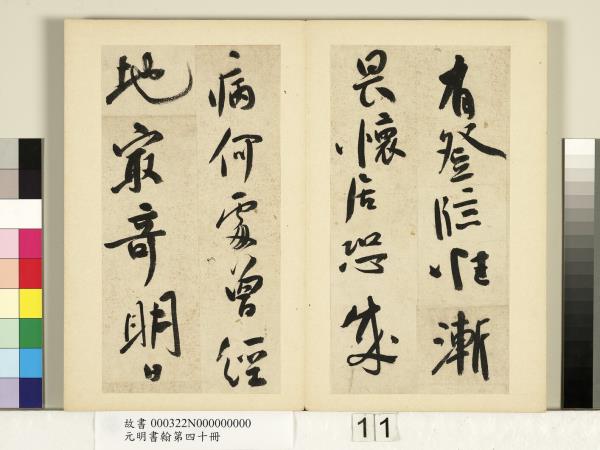 有登臨性漸
畏懷居恐成
病何處曾經
地最奇明日
故書 000322N000000000
元明書翰第四十冊
11